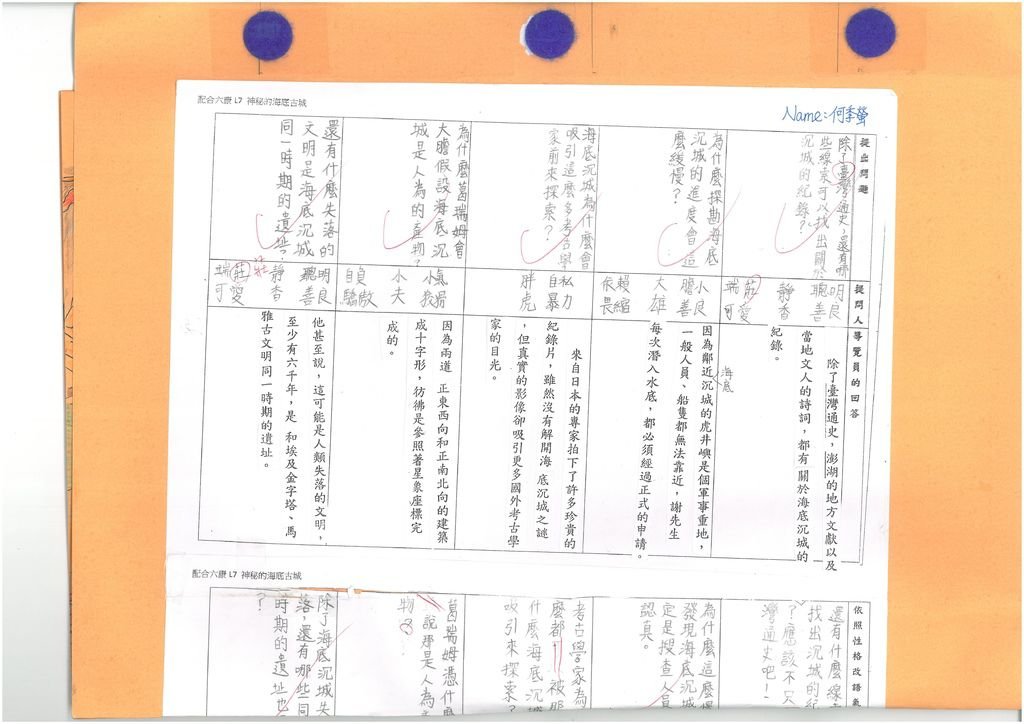 配合六康 L7 神秘的海底古城
Name:何季螢
提出問題
除了臺灣通史,還有哪
些線索可以找出關於
沉城的紀錄?
為什麼探勘海底
沉城的進度會這
麼緩慢?
海底沉城為什麼會
吸引這麼多考古學
家前來探索?
為什麼葛瑞姆會
大膽假設海底沉
城是人為的產物?
還有什麼失落的
文明是海底沉城
同一時期的遺址?
提問人
聰明
善良
靜香
端莊
可愛
膽小
善良
大雄
依賴
畏縮
自私
暴力
胖虎
小氣
小夫
自負
驕傲
聰明
善良
靜香
端莊
可愛
莊
導覽員的回答
除了臺灣通史,澎湖的地方文獻以及
當地文人的詩詞,都有關於海底沉城的
紀錄。
海底
因為鄰近沉城的虎井嶼是個軍事重地,
一般人員、船隻都無法靠近,謝先生
每次潛入水底,都必須經過正式的申請。
來自日本的專家拍下了許多珍貴的
紀錄片,雖然沒有解開海底沉城之謎
,但真實的影像卻吸引更多國外考古學
家的目光。
因為兩道 正東西向和正南北向的建築
成十字形,彷彿是參照著星象座標完
成的。
他甚至說,這可能是人類失落的文明,
至少有六千年,是 和埃及金字塔、馬
雅古文明同一時期的遺址。
配合六康 L7 神秘的海底古城
依照性格改語氣
還有什麼線
找出沉城的紀
?應該不只
灣通史吧!
為什麼這麼
發現海底沉城
定是搜查人員
認真。
考古學家為
麼都 被那
什麼海底沉
吸引來探索?
葛瑞姆憑什麼
說那是人為
物?
除了海底沉城失
落,還有哪些同
時期的遺址也
?